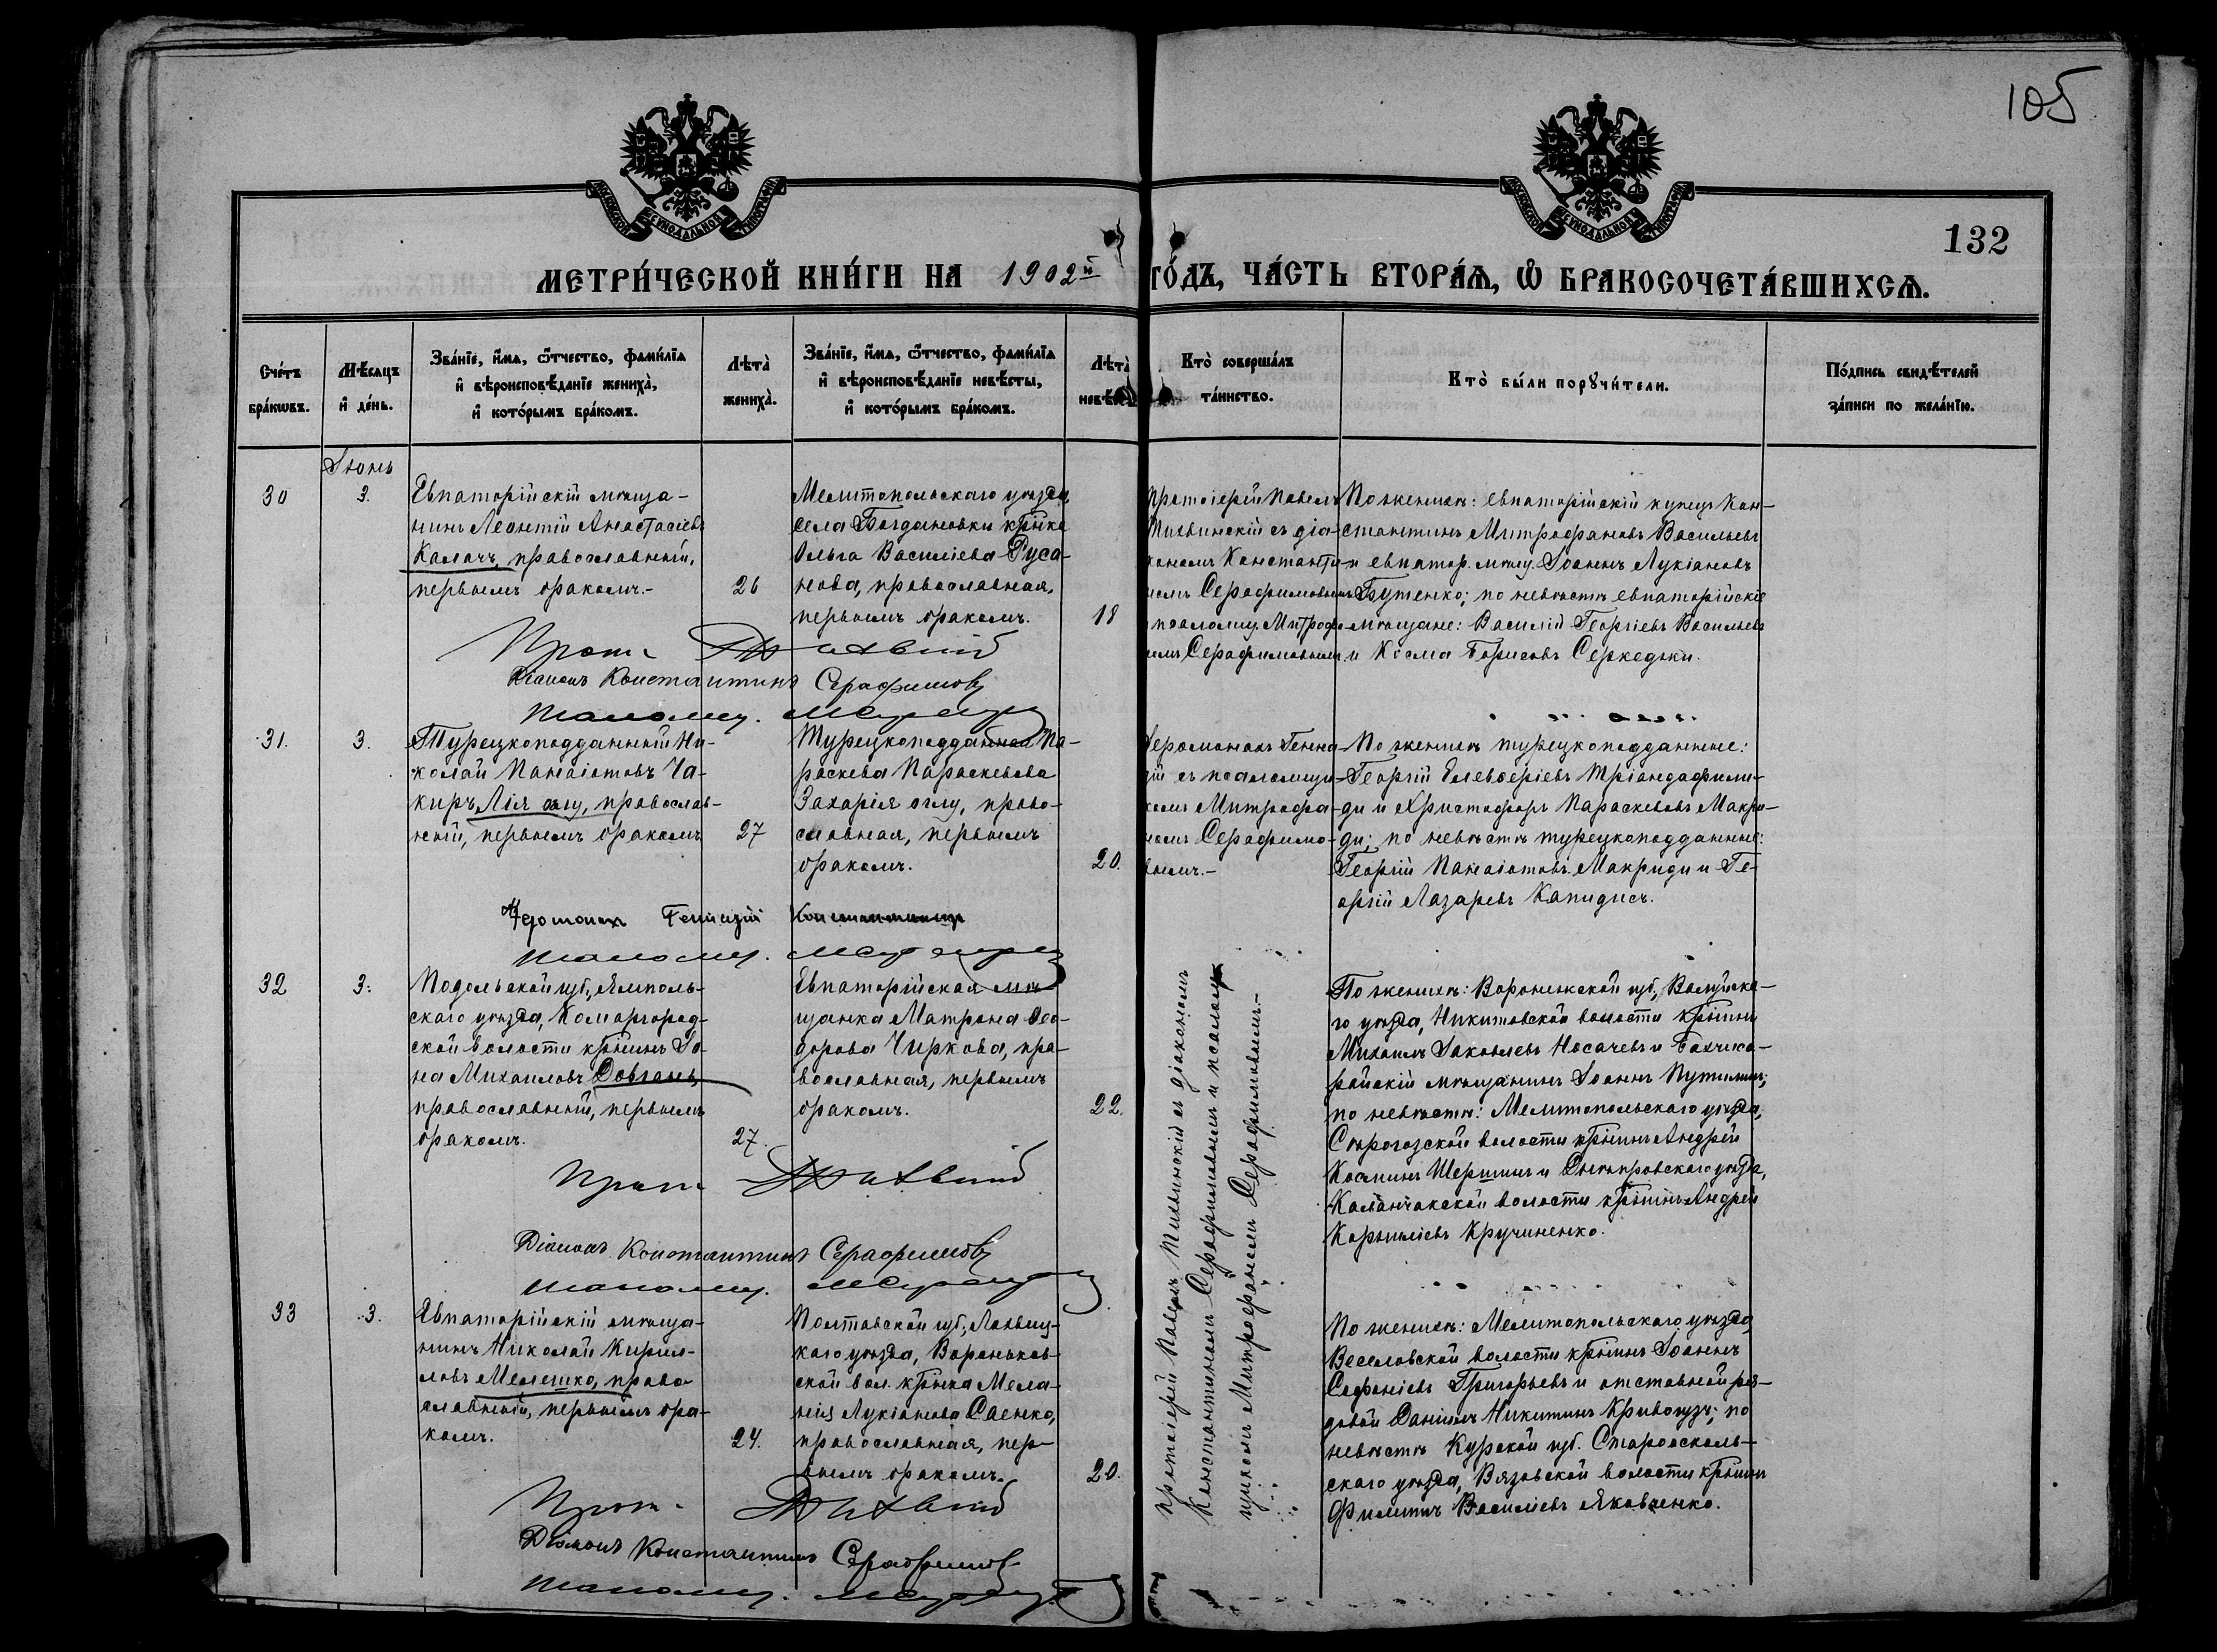 105
132
МЕТРИ́ЧЕСКОЙ КНИ́ГИ НА 1902й ГО́ДЪ, ЧА́СТЬ ВТОРА́Ѧ, Ѡ҆ БРАКОСОЧЕТА́ВШИХСѦ.
Сче́тъ бра́кѡвъ.
Мѣ́сѧцъ и҆ де́нь.
Зва́нїе, и҆́мѧ, ѻ҆́тчество, фами́лїѧ и҆ вѣроисповѣ́данїе жениха̀, и҆ кото́рымъ бра́комъ.
Лѣта̀ жениха̀.
Зва́нїе, и҆́мѧ, ѻ҆́тчество, фами́лїѧ и҆ вѣроисповѣ́данїе невѣ́сты, и҆ кото́рымъ бра́комъ.
Лѣта̀
Кто̀ соверша́лъ та́инство.
Кто̀ бы́ли порꙋчи́тели.
По́дпись свидѣ́телей за́писи по жела́нїю.
Іюнь
30
3.
Евпаторійскій мѣща-
нинъ Леонтій Анастасіевъ
Калачъ, православный,
первымъ бракомъ.-
26
Мелитопольскаго уѣзда,
села Богдановки кр-нка
Ольга Василіева Руса-
нова, православная,
первымъ бракомъ.
18
протоіерей Павелъ
Тихвинскій съ діа-
кономъ Константи-
номъ Серафимовымъ
псаломщ. Митрофа-
номъ Серафимовымъ.
По женихѣ: евпаторійскій купецъ Кон-
стантинъ Митрофановъ Васильевъ
и евпатор. мѣщ. Іоаннъ Лукіановъ
Бутенко; по невѣстѣ евпаторійскіе
мѣщане: Василій Георгіевъ Васильевъ
и Косма Борисовъ Серкеджи.
Прот. Тихвинскій
Діаконъ Константинъ Серафимовъ
Псаломщ.
31.
3.
Турецкоподданный Ни-
колай Панаіотовъ Ча-
киръ Лія оглу, православ-
ный, первымъ бракомъ
27
Турецкоподданная Па-
раскева Параскевова
Захарія оглу, право-
славная, первымъ
бракомъ.
20.
Іеромонахъ Генна-
дій съ псаломщи-
комъ Митрофа-
номъ Серафимо-
вымъ.-
По женихѣ турецкоподданные:
Георгій Елевѳеріевъ Тріандафили-
ди и Христофоръ Параскевовъ Макри-
ди; по невѣстѣ турецкоподданные:
Георгій Панаіотовъ Макриди и Ге-
оргій Лазаревъ Капидисъ.
Іеромонахъ Геннадій
Псаломщ.
32
3.
Подольской губ., Ямполь-
скаго уѣзда, Комаргород-
ской волости кр-нинъ Іо-
на Михаиловъ Довгань,
православный, первымъ
бракомъ.
27.
Евпаторійская мѣ-
щанка Матрона Ѳео-
дорова Чиркова, пра-
вославная, первымъ
бракомъ.
22.
протоіерей Павелъ Тихвинскій съ діакономъ
Константиномъ Серафимовымъ и псалом-
щикомъ Митрофаномъ Серафимовымъ.-
По женихѣ: Воронежской губ., Валуйска-
го уѣзда, Никитовской волости кр-нинъ
Михаилъ Іаковлевъ Носачевъ и Бахчиса-
райскій мѣщанинъ Іоаннъ Путилинъ;
по невѣстѣ: Мелитопольскаго уѣзда,
Сѣрогозской волости кр-нинъ Андрей
Косминъ Шершинъ и Днѣпровскаго уѣзда,
Каланчакской волости кр-нинъ Андрей
Корниліевъ Кручиненко.
Прот. Тихвинскій
Діаконъ Константинъ Серафимовъ
Псаломщ.
33
3.
Евпаторійскій мѣща-
нинъ Николай Кирил-
ловъ Мелешко, право-
славный, первымъ бра-
комъ.
24.
Полтавской губ., Лохвиц-
каго уѣзда, Вороньков-
ской вол. кр-нка Мела-
нія Лукіанова Саенко,
православная, пер-
вымъ бракомъ.
20.
По женихѣ: Мелитопольскаго уѣзда,
Веселовской волости кр-нинъ Іоаннъ
Софоніевъ Григорьевъ и отставной ря-
довой Даніилъ Никитинъ Кривогузъ; по
невѣстѣ Курской губ. Старооскол-
скаго уѣзда, Вязовской волости кр-нинъ
Филиппъ Василіевъ Яковченко.
Прот. Тихвинскій
Діаконъ Константинъ Серафимовъ
Псаломщ.